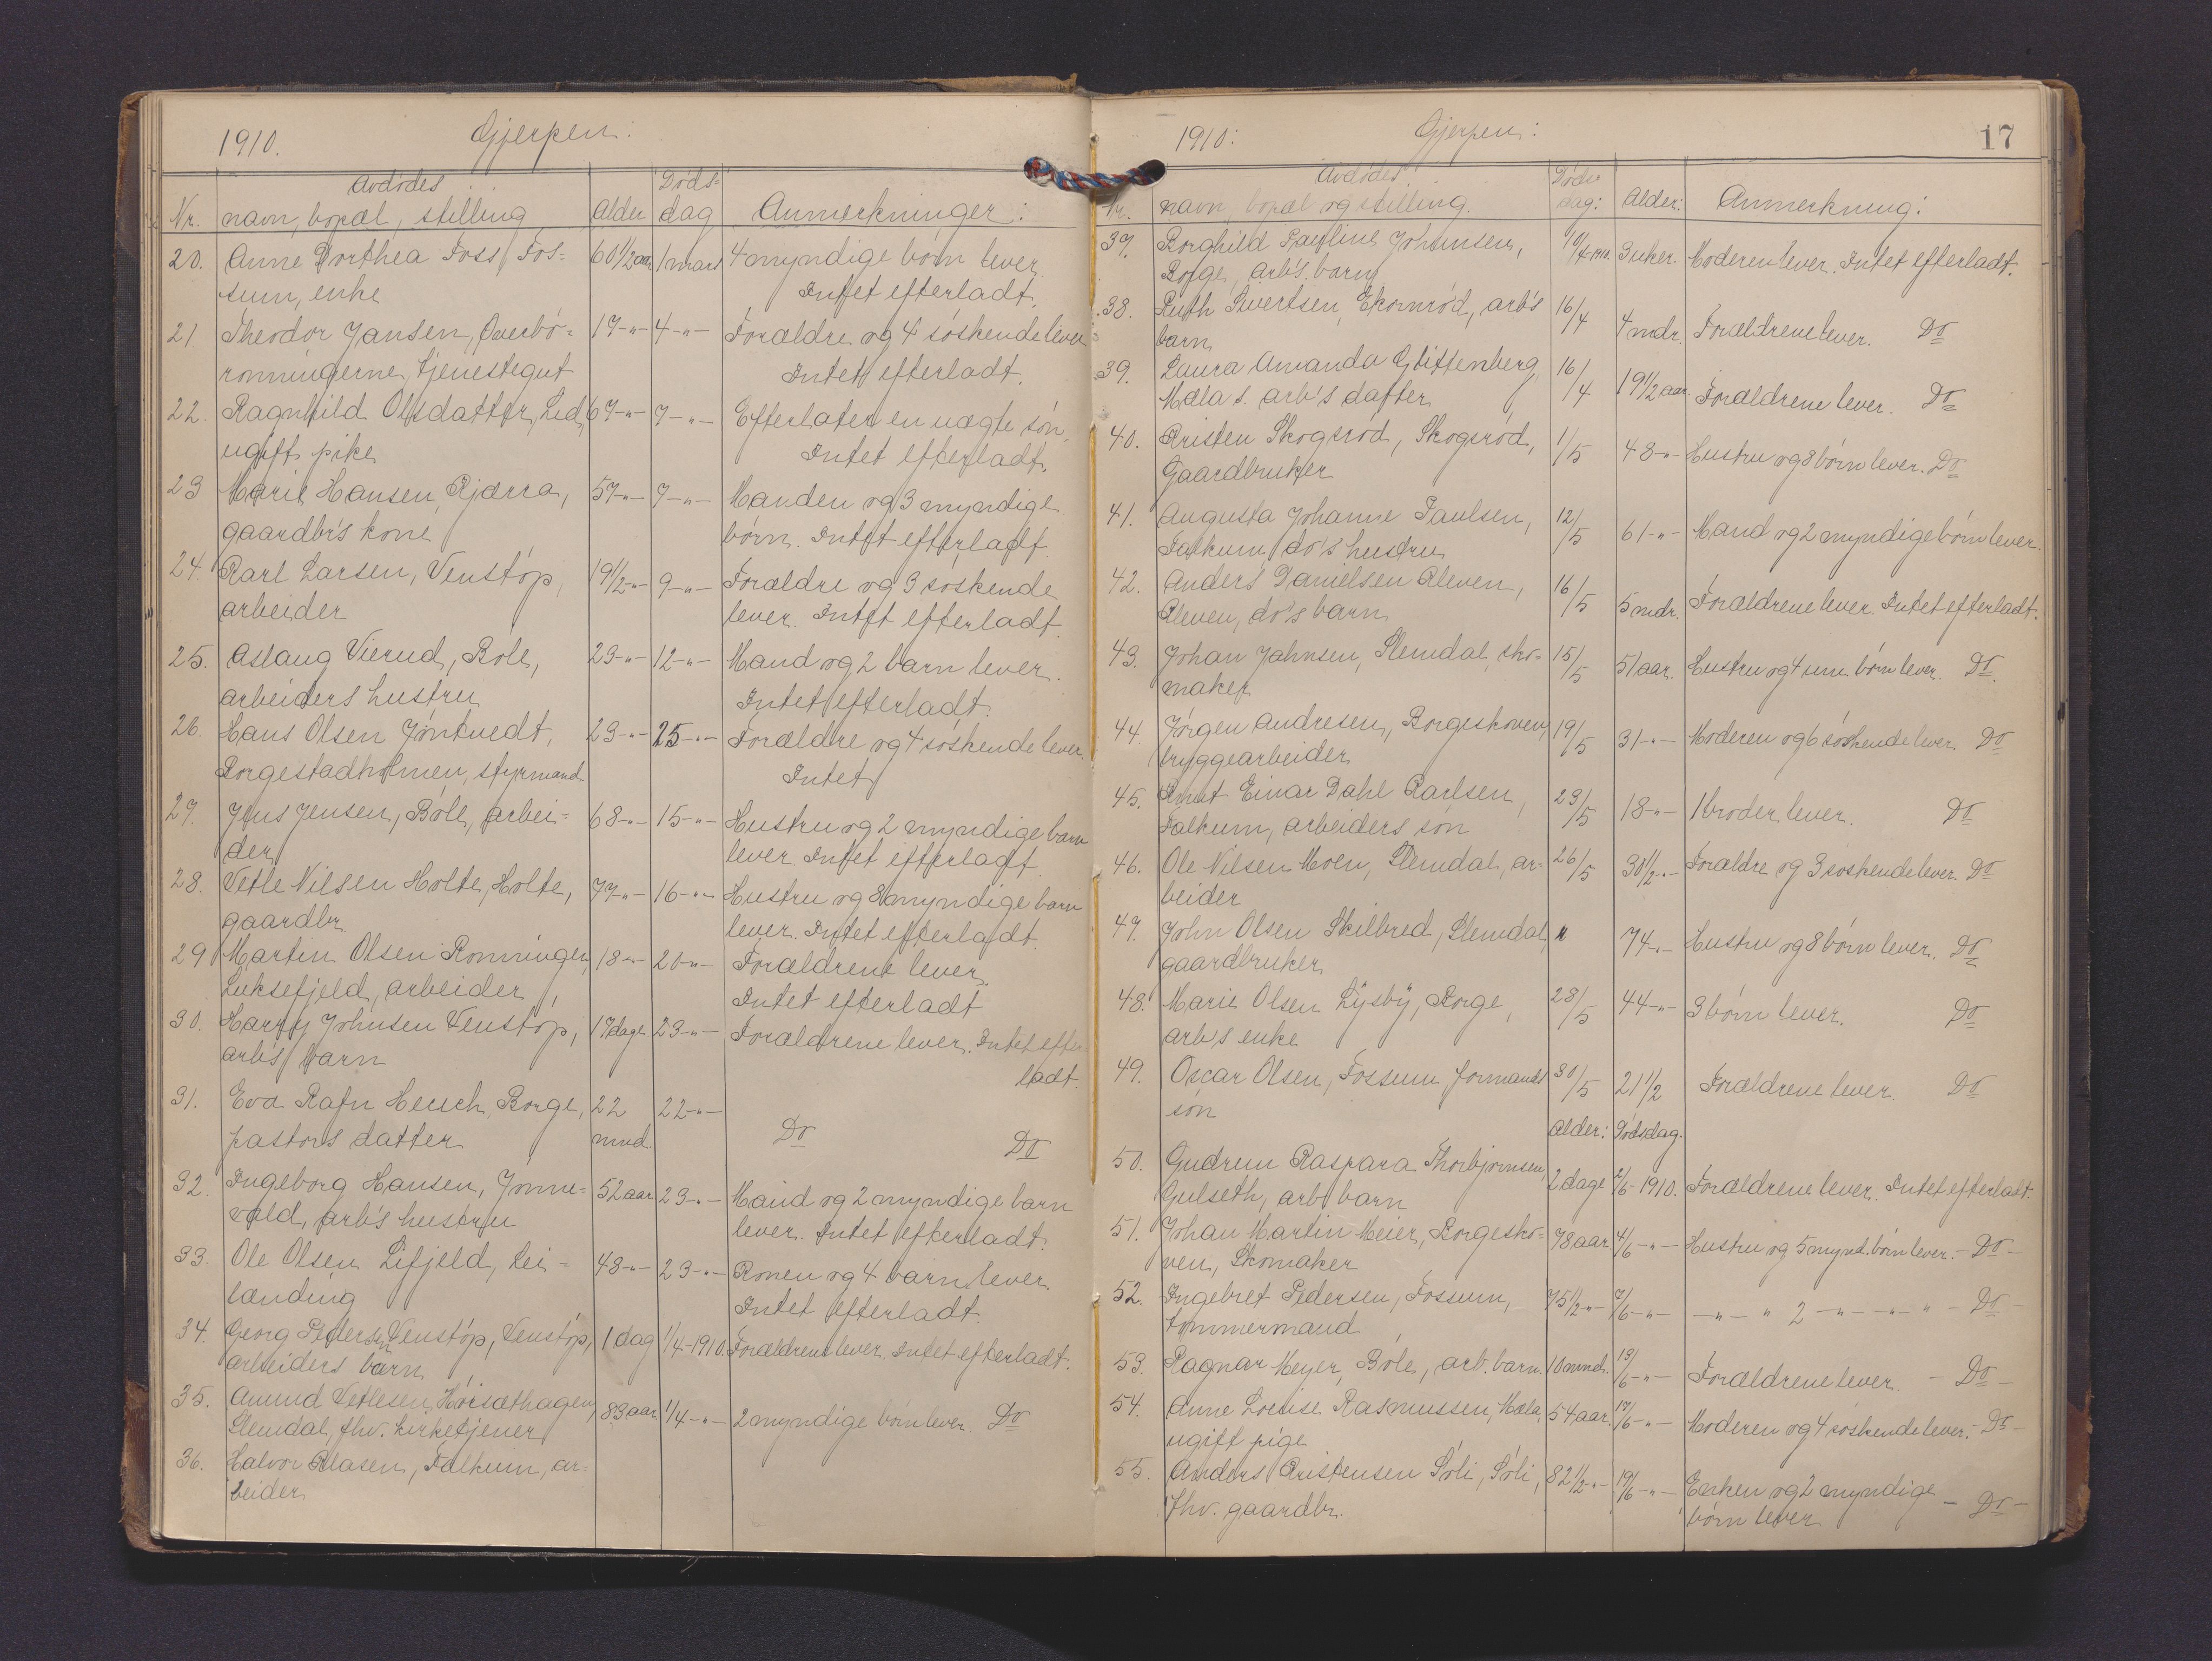 1910. Gjerpen:
Avdødes Døds-
Nr. navn, bopæl, stilling Alder dag Anmerkninger:
20. Anne Dorthea Foss, Fos- 60 1/2 aar 1 mars 4 myndige børn lever
sum, enke Intet efterladt.
21 Theodor Jansen, Øverbø- 17-"- 4-"- Forældre og 4 søskende lever
ronningerne, tjenestegut Intet efterladt.
22. Ragnhild Olsdatter, Lid, 67-"- 7-"- Efterlater en uægte søn,
ugift pike Intet efterladt.
23 Marie Hansen, Kjærra, 57-"- 7-"- Manden og 3 myndige
gaardbr's kone børn. Intet efterladt
24. Karl Larsen, Venstøp, 19 1/2-"- 9-"- Forældre og 3 søskende
arbeider lever. Intet efterladt
25. Aslaug Vierud, Bøle, 23-"- 12-"- Mand og 2 barn lever.
arbeiders hustru Intet efterladt.
26. Hans Olsen Jøntvedt, 23-"- 25-"- Forældre og 4 søskende lever
Borgestadholmen, styrmand Intet
27. Jens Jensen, Bøle, arbei- 68-"- 15-"- Hustru og 2 myndige barn
der lever. Intet efterladt
28. Vetle Nilsen Holte, Holte, 77-"- 16-"- Hustru og 8 myndige barn
gaardbr. lever. Intet efterladt.
29 Martin Olsen Rønningen, 18-"- 20-"- Forældrene lever
Luksefjeld, arbeider Intet efterladt
30. Harry Johnsen Venstøp, 17 dage 23-"- Forældrene lever. Intet efter
arb's barn ladt.
31. Eva Rafn Heuch, Borge, 22 22-"-
pastors datter mnd. Do Do
32. Ingeborg Hansen, Jønne- 52 aar 23-"- Mand og 2 myndige barn
vald, arb's hustru lever. Intet efterladt.
33. Ole Olsen Lifjeld, Lei- 48-"- 23-"- Konen og 4 barn lever
lænding Intet efterladt.
34. Georg Pedersen Venstøp, Venstøp, 1 dag 1/4-1910. Forældrene lever. Intet efterladt.
arbeiders barn
35. Amund Vetlesen, Hørsæthagen, 83 aar 1/4-"- 2 myndige børn lever. Do
Slemdal, fhv. kirketjener
36. Halvor Klasen, Falkum, ar-
beider
1910: Gjerpen: 17
Avdødes Døds
Nr. navn, bopæl og stilling. dag: Alder: Anmerkning:
37. Borghild Pauline Johansen, 10/4 1910. 3 uker. Moderen lever. Intet efterladt.
Borge, arb's. barn
38. Ruth Sivertsen, Ekornrød, arb's 16/4 4 mdr. Forældrene lever. Do
barn
39. Laura Amanda Glittenberg, 16/4 19 1/2 aar Forældrene lever. Do
Mæla s. arb's datter
40. Kristen Skogsrød, Skogsrød, 1/5 48-"- Hustru og 8 børn lever. Do
Gaardbruker
41. Augusta Johanne Paulsen, 12/5 61-"- Mand og 2 myndige børn lever.
Falkum, do's hustru
42. Anders Danielsen Kleven, 16/5 5 mdr. Forældrene lever. Intet efterladt.
Kleven, do's barn
43. Johan Jahnsen, Slemdal, sko- 15/5 51 aar. Hustru og 4 um børn lever. Do.
maker
44. Jørgen Andresen, Borgeskoven, 19/5 31-"- Moderen og 6 søskende lever. Do
bryggearbeider
45. Knut Einar Dahl Karlsen, 23/5 18-"- 1 broder lever. Do
Falkum, arbeiders søn
46. Ole Nilsen Moen, Slemdal, ar- 26/5 30 1/2-"- Forældre og 3 søskende lever. Do
beider
47. John Olsen Skilbred, Slemdal, " 74-"- Hustru og 8 børn lever. Do
gaardbruker
48. Marie Olsen Lysby, Borge, 28/5 44-"- 3 børn lever. Do
arb's enke
49. Oscar Olsen, Fossum, formands 30/5 21 1/2 Forældrene lever. Do
søn
Alder: Dødsdag.
50. Gudrun Kaspara Thorbjørnsen, 2 dage 2/6-1910. Forældrene lever. Intet efterladt.
Gulseth, arb barn
51. Johan Martin Meier, Borgesko- 78 aar 4/6-"- Hustru og 5 mynd. børn lever. - Do -
ven, Skomaker
52. Ingebret Pedersen, Fossum, 75 1/2-"- 7/6-"- -"- " 2 -"- -"- " - Do -
tømmermand
53. Ragnar Meyer, Bøle, arb. barn. 10 mnd. 13/6-"- Forældrene lever. - Do -
54. Anne Lovise Rasmussen, Mæla, 54 aar. 17/6-"- Moderen og 4 søskende lever. - Do -
ugift pige
55. Anders Kristensen Søli, Søli, 82 1/2-"- 19/6-"- Enken og 2 myndige - Do -
fhv. gaardbr. børn lever